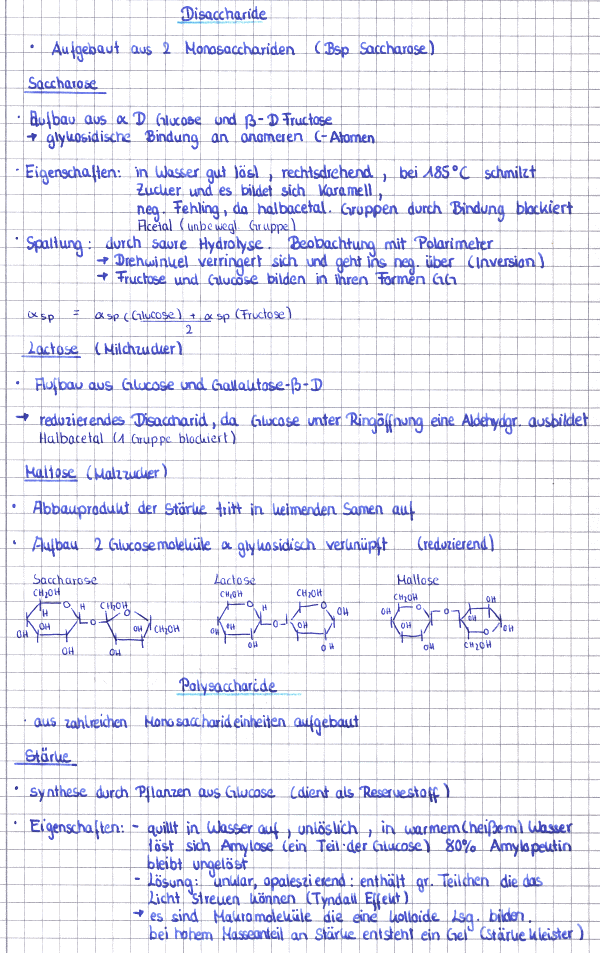 Disaccharide
• Aufgebaut aus 2 Monosacchariden (Bsp Saccharose)
Saccharose
• Aufbau aus α D Glucose und β-D Fructose
→ glykosidische Bindung an anomeren C-Atomen
• Eigenschaften: in Wasser gut lösl, rechtsdrehend, bei 185°C schmilzt
Zucker und es bildet sich Karamell,
neg. Fehling, da halbacetal. Gruppen durch Bindung blockiert
Acetal (unbewegl. Gruppe)
• Spaltung: durch saure Hydrolyse. Beobachtung mit Polarimeter
→ Drehwinkel verringert sich und geht ins neg. über (Inversion)
→ Fructose und Glucose bilden in ihren Formen GG
α sp = α sp (Glucose) + α sp (Fructose)
2
Lactose (Milchzucker)
• Aufbau aus Glucose und Gallaktose-β-D
→ reduzierendes Disaccharid, da Glucose unter Ringöffnung eine Aldehydgr. ausbildet
Halbacetal (1 Gruppe blockiert)
Maltose (Malzzucker)
• Abbauprodukt der Stärke tritt in keimenden Samen auf
• Aufbau 2 Glucosemoleküle α glykosidisch verknüpft (reduzierend)
Saccharose Lactose Maltose
CH2OH CH2OH CH2OH CH2OH CH2OH OH
O H O H O OH OH O O
H OH O O OH CH2OH OH O OH OH OH O OH
OH OH OH OH OH OH OH CH2OH
Polysaccharide
• aus zahlreichen Monosaccharideinheiten aufgebaut
Stärke
• synthese durch Pflanzen aus Glucose (dient als Reservestoff)
• Eigenschaften: - quillt in Wasser auf, unlöslich, in warmem (heißem) Wasser
löst sich Amylose (ein Teil der Glucose) 80% Amylapektin
bleibt ungelöst
- Lösung: unklar, opaleszierend: enthält gr. Teilchen die das
Licht streuen können (Tyndall Effekt)
→ es sind Makromoleküle die eine kolloide Lsg. bilden.
bei hohem Masseanteil an Stärke entsteht ein Gel (Stärkekleister)